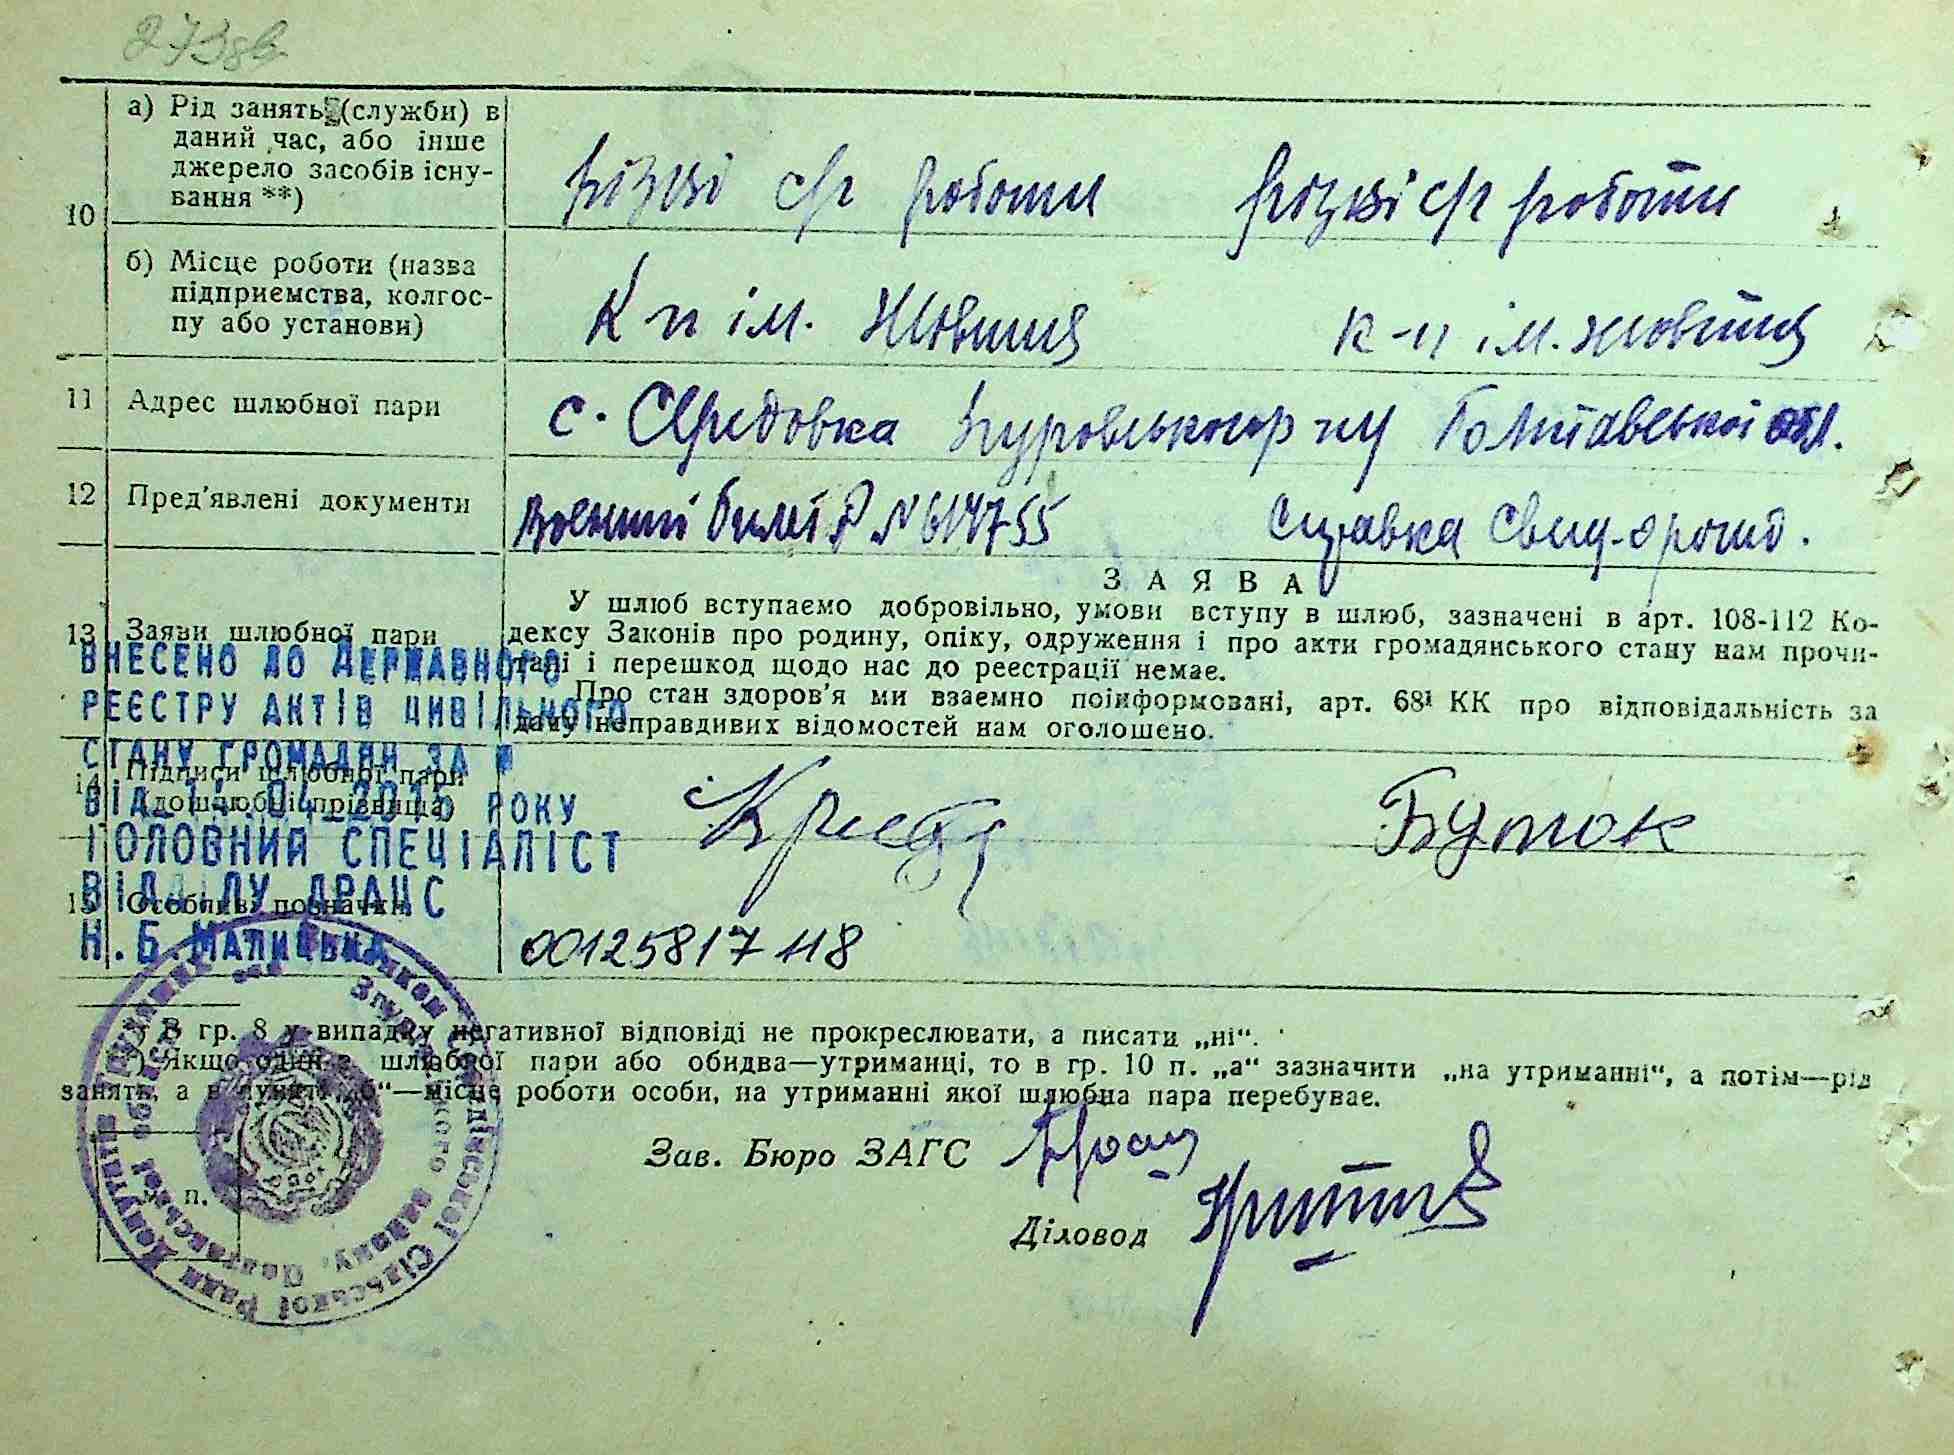 273зв
а) Рід занять (служби) в
даний час, або інше
джерело засобів існу-
вання **)
10
різні с/г роботи різні с/г роботи
б) Місце роботи (назва
підприємства, колгос-
пу або установи)
К-п ім. Жовтня к-п ім. Жовтня
11 Адрес шлюбної пари
с. Середовка Згуровського р-ну Полтавської обл.
12 Пред'явлені документи
Военний билет № 614755 Справка Свид. о рожд.
ЗАЯВА
13 Заяви шлюбної пари
У шлюб вступаємо добровільно, умови вступу в шлюб, зазначені в арт. 108-112 Ко-
дексу Законів про родину, опіку, одруження і про акти громадянського стану нам прочи-
тані і перешкод щодо нас до реєстрації немає.
Про стан здоров'я ми взаємно поінформовані, арт. 68¹ КК про відповідальність за
дачу неправдивих відомостей нам оголошено.
ВНЕСЕНО ДО ДЕРЖАВНОГО
РЕЄСТРУ АКТІВ ЦИВІЛЬНОГО
СТАНУ ГРОМАДЯН ЗА №
ВІД РОКУ
ГОЛОВНИЙ СПЕЦІАЛІСТ
ВІДДІЛУ ДРАЦС
Н.Б.
14 Підписи шлюбної пари
(дошлюбні прізвища)
Буток
15 Особливі позначки
00125817418
*) В гр. 8 у випадку негативної відповіді не прокреслювати, а писати „ні“.
**) Якщо один з шлюбної пари або обидва—утриманці, то в гр. 10 п. „а“ зазначити „на утриманні“, а потім—рід
занять, а в пункті „б“—місце роботи особи, на утриманні якої шлюбна пара перебуває.
Зав. Бюро ЗАГС
Діловод
м. п.